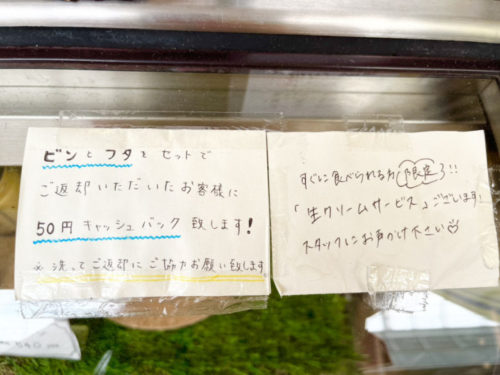 ビンとフタをセットで
ご返却いただいたお客様に
50円キャッシュバック致します!
※洗ってご返却にご協力お願い致します
すぐに食べられる方限定!!
「生クリームサービス」ございます!
スタッフにお声がけ下さい